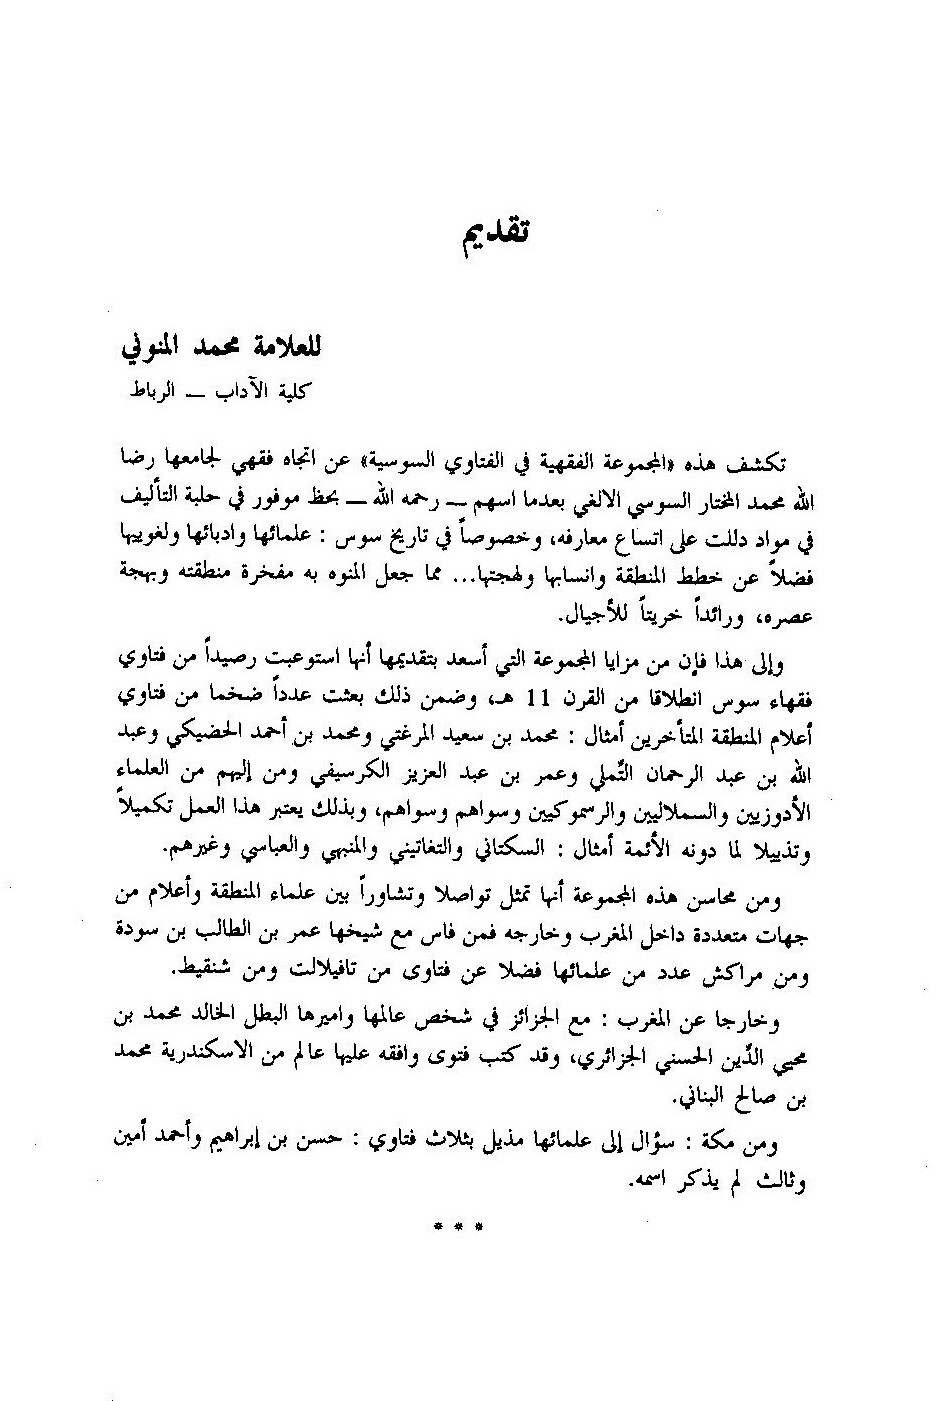 تقديم
للعلامة محمد المنوني
كلية الآداب — الرباط
تكشف هذه «المجموعة الفقهية في الفتاوي السوسية» عن اتجاه فقهي لجامعها رضا
الله محمد المختار السوسي الالغي بعدما اسهم — رحمه الله — بحظ موفور في حلبة التأليف
في مواد دللت على اتساع معارفه، وخصوصاً في تاريخ سوس : علمائها وادبائها ولغوييها
فضلاً عن خطط المنطقة وانسابها ولهجتها... مما جعل المنوه به مفخرة منطقته وبهجة
عصره، ورائداً خريتاً للأجيال.
وإلى هذا فإن من مزايا المجموعة التي أسعد بتقديمها أنها استوعبت رصيداً من فتاوي
فقهاء سوس انطلاقا من القرن 11 هـ، وضمن ذلك بعثت عدداً ضخما من فتاوي
أعلام المنطقة المتأخرين أمثال : محمد بن سعيد المرغتي ومحمد بن أحمد الحضيكي وعبد
الله بن عبد الرحمان التَّملي وعمر بن عبد العزيز الكرسيفي ومن إليهم من العلماء
الأدوزيين والسملاليين والرسموكيين وسواهم وسواهم، وبذلك يعتبر هذا العمل تكميلاً
وتذييلا لما دونه الأئمة أمثال : السكتاني والتغاتيني والمنبهي والعباسي وغيرهم.
ومن محاسن هذه المجموعة أنها تمثل تواصلا وتشاوراً بين علماء المنطقة وأعلام من
جهات متعددة داخل المغرب وخارجه فمن فاس مع شيخها عمر بن الطالب بن سودة
ومن مراكش عدد من علمائها فضلا عن فتاوى من تافيلالت ومن شنقيط.
وخارجا عن المغرب : مع الجزائر في شخص عالمها واميرها البطل الخالد محمد بن
محيي الدِّين الحسني الجزائري، وقد كتب فتوى وافقه عليها عالم من الاسكندرية محمد
بن صالح البناني.
ومن مكة : سؤال إلى علمائها مذيل بثلاث فتاوي : حسن بن إبراهيم وأحمد أمين
وثالث لم يذكر اسمه.
* * *